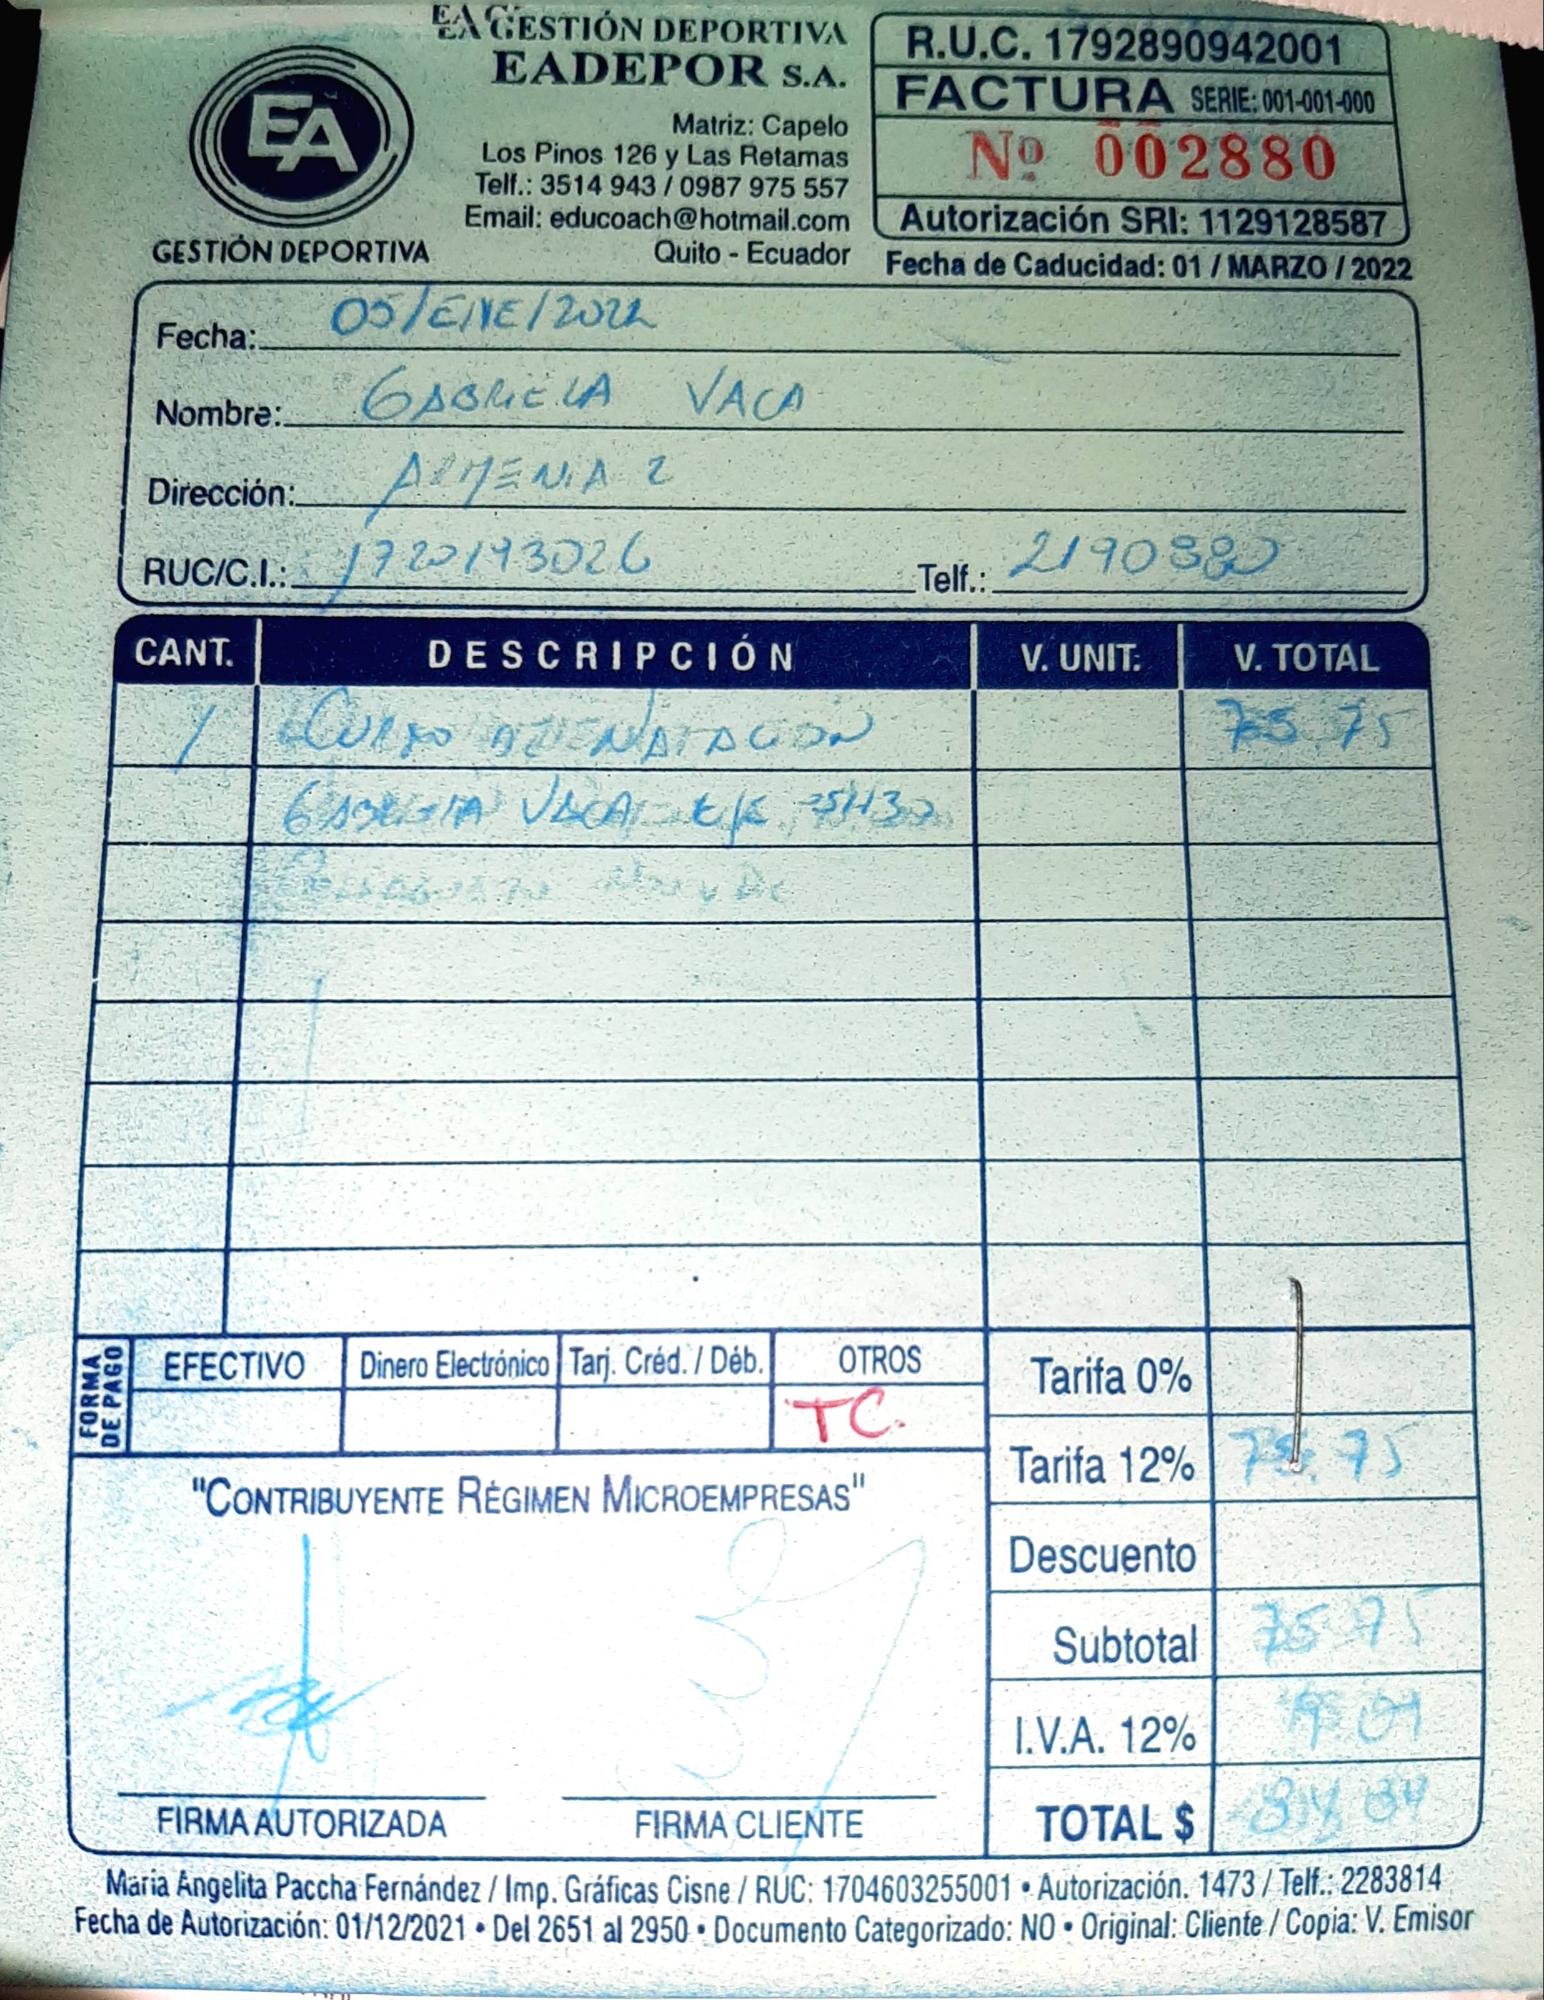 EA GESTIÓN DEPORTIVA
EADEPOR S.A.
Matriz: Capelo
Los Pinos 126 y Las Retamas
Telf.: 3514 943 / 0987 975 557
Email: educoach@hotmail.com
Quito - Ecuador
EA
GESTIÓN DEPORTIVA
R.U.C. 1792890942001
FACTURA SERIE: 001-001-000
Nº 002880
Autorización SRI: 1129128587
Fecha de Caducidad: 01 / MARZO / 2022
Fecha: 05/ENE/2022
Nombre: GABRIELA VACA
Dirección: ARMENIA 2
RUC/C.I.: 1720193026 Telf.: 2190880
CANT. DESCRIPCIÓN V. UNIT. V. TOTAL
1 CURSO DE NATACION 75.75
GABRIELA VACA
FORMA DE PAGO
EFECTIVO Dinero Electrónico Tarj. Créd. / Déb. OTROS
TC.
Tarifa 0%
Tarifa 12% 75.75
Descuento
Subtotal 75.75
I.V.A. 12%
TOTAL $ 84.84
"CONTRIBUYENTE RÉGIMEN MICROEMPRESAS"
FIRMA AUTORIZADA FIRMA CLIENTE
Maria Angelita Paccha Fernández / Imp. Gráficas Cisne / RUC: 1704603255001 • Autorización. 1473 / Telf.: 2283814
Fecha de Autorización: 01/12/2021 • Del 2651 al 2950 • Documento Categorizado: NO • Original: Cliente / Copia: V. Emisor